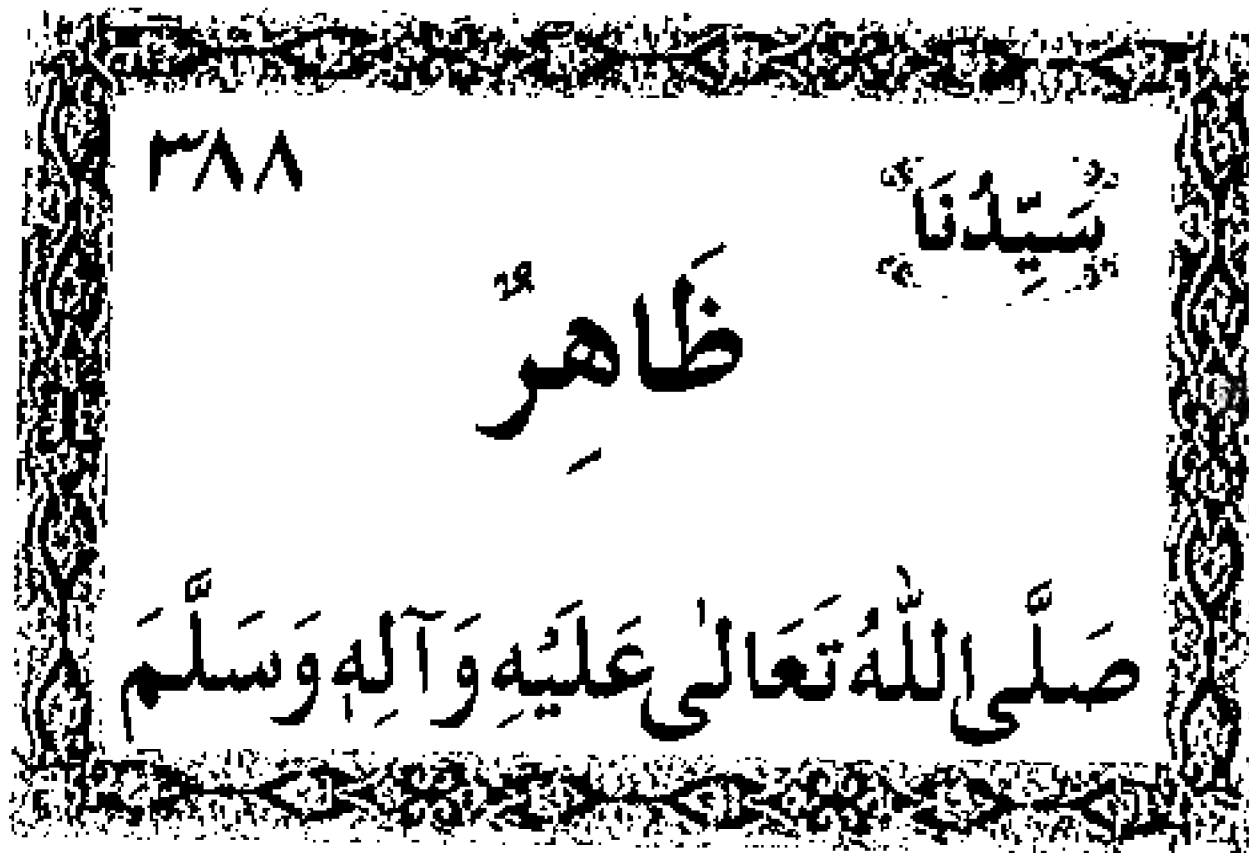 سَيِّدُنَا ٣٨٨
ظَاهِرٌ
صَلَّى اللّٰهُ تَعَالٰى عَلَيْهِ وَآلِهٖ وَسَلَّمَ